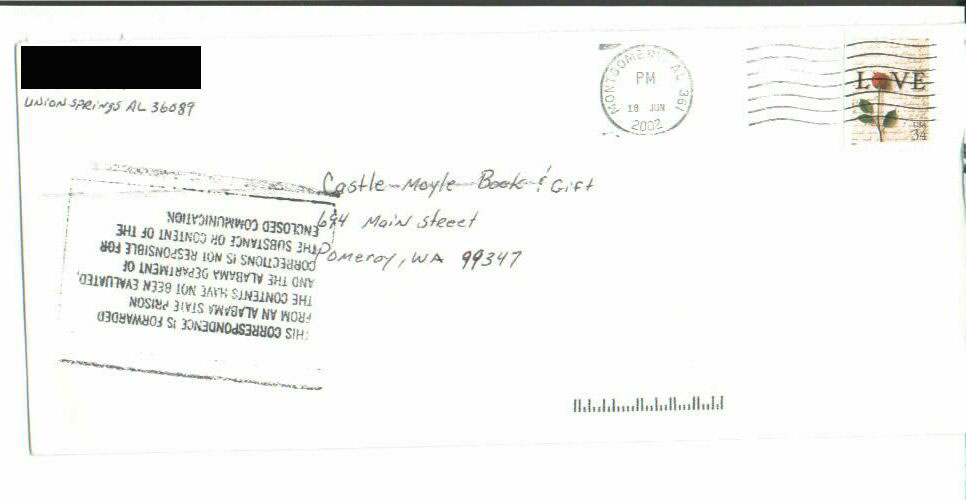 UNION SPRINGS AL 36089
MONTGOMERY, AL 361
PM
18 JUN
2002
LOVE
USA
34
Castle-Moyle Book & Gift
694 Main Street
Pomeroy, WA 99347
THIS CORRESPONDENCE IS FORWARDED
FROM AN ALABAMA STATE PRISON
THE CONTENTS HAVE NOT BEEN EVALUATED,
AND THE ALABAMA DEPARTMENT OF
CORRECTIONS IS NOT RESPONSIBLE FOR
THE SUBSTANCE OR CONTENT OF THE
ENCLOSED COMMUNICATION